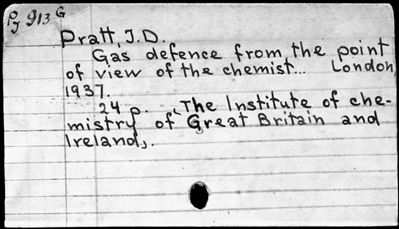 P/J 913 G
Pratt, J.D.
Gas defence from the point
of view of the chemist... London,
1937.
24 p. (The Institute of che-
mistry of Great Britain and
Ireland).